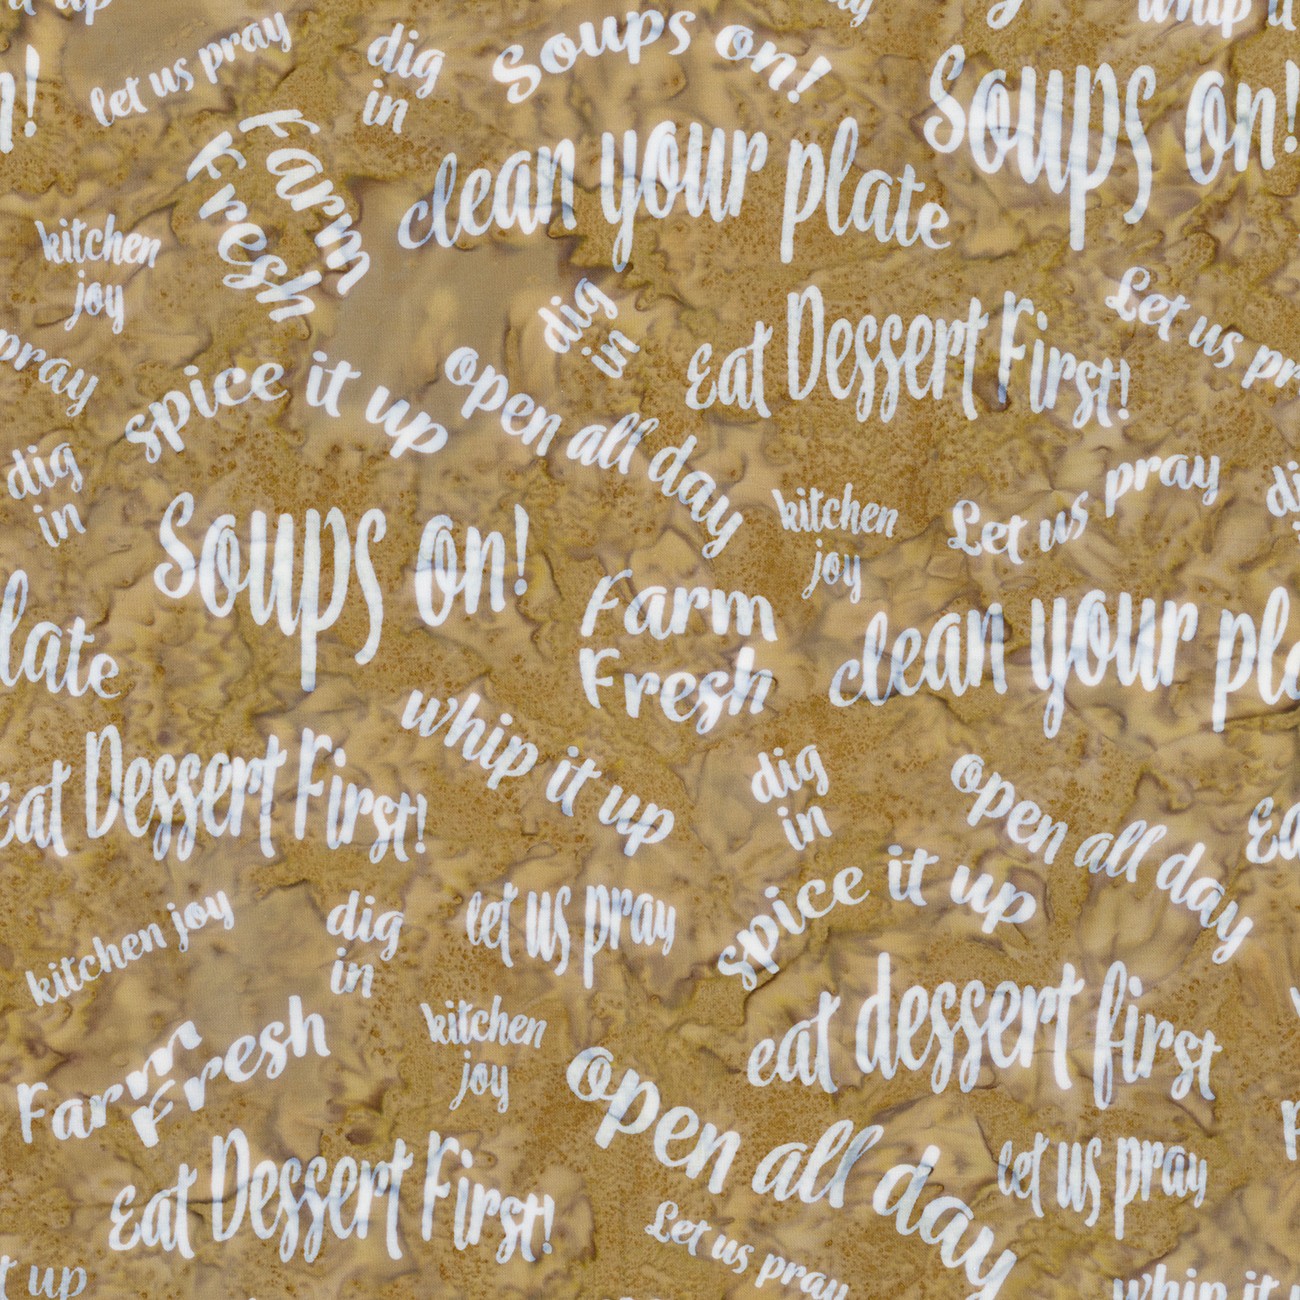 it up
let us pray
dig
in
Soups on!
whip it
Soups on!
Farm
Fresh
clean your plate
kitchen
joy
dig
in
Eat Dessert First!
Let us pr
pray
spice it up
open all day
dig
in
kitchen
joy
Let us pray
di
Soups on!
Farm
Fresh
clean your pla
late
whip it up
dig
in
open all day
Eat Dessert First!
Ea
spice it up
kitchen joy
dig
in
let us pray
eat dessert first
kitchen
joy
Farm
Fresh
open all day
let us pray
Eat Dessert First!
Let us pray
t up
whip it